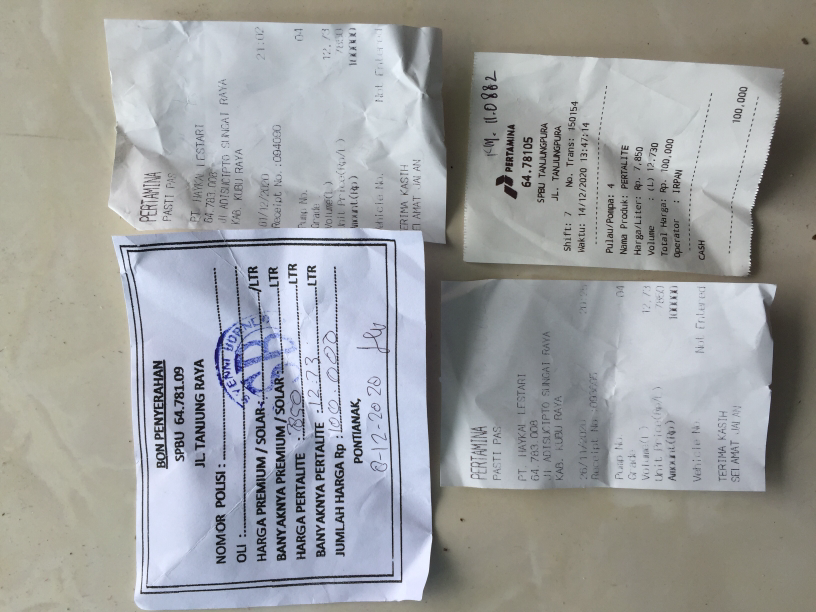 PERTAMINA
PASTI PAS
PT. HAYKAL LESTARI
64.783.008
Jl ADISUCIPTO SUNGAI RAYA
KAB. KUBU RAYA
/12/2020 21:02
Receipt No.:094090
Pump No. 04
Grade
Volume(L) 12.73
Unit Price(Rp/L) 7850
Amount(Rp) 100000
Vehicle No. Not Entered
TERIMA KASIH
SELAMAT JALAN
KM. 110882
PERTAMINA
64.78105
SPBU TANJUNGPURA
JL. TANJUNGPURA
Shift: 7 No. Trans: 150154
Waktu: 14/12/2020 13:47:14
Pulau/Pompa: 4
Nama Produk: PERTALITE
Harga/Liter: Rp. 7,850
Volume : (L) 12,730
Total Harga: Rp. 100,000
Operator : IRPAN
CASH
100,000
BON PENYERAHAN
SPBU 64.781.09
JL TANJUNG RAYA
NOMOR POLISI :
OLI :
HARGA PREMIUM / SOLAR : /LTR
BANYAKNYA PREMIUM / SOLAR : LTR
HARGA PERTALITE : 7850 LTR
BANYAKNYA PERTALITE : 12.73 LTR
JUMLAH HARGA Rp : 100.000
PONTIANAK,
8-12-2020
PERTAMINA
PASTI PAS
PT. HAYKAL LESTARI
64.783.008
Jl ADISUCIPTO SUNGAI RAYA
KAB. KUBU RAYA
Receipt No.
Pump No. 04
Grade
Volume(L) 12.73
Unit Price(Rp/L) 7850
Amount(Rp) 100000
Vehicle No. Not Entered
TERIMA KASIH
SELAMAT JALAN